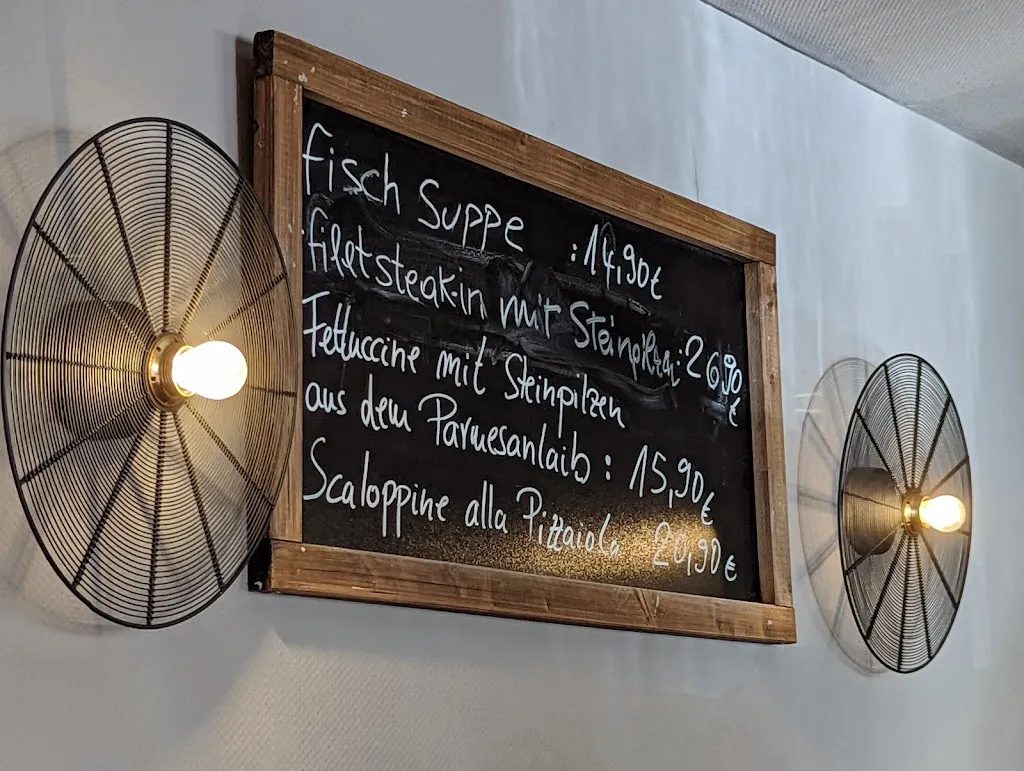 fisch Suppe : 14,90€
filetsteak-in mit Steinpilzen: 26,90 €
Fettuccine mit Steinpilzen
aus dem Parmesanlaib : 15,90€
Scaloppine alla Pizzaiola 20,90€